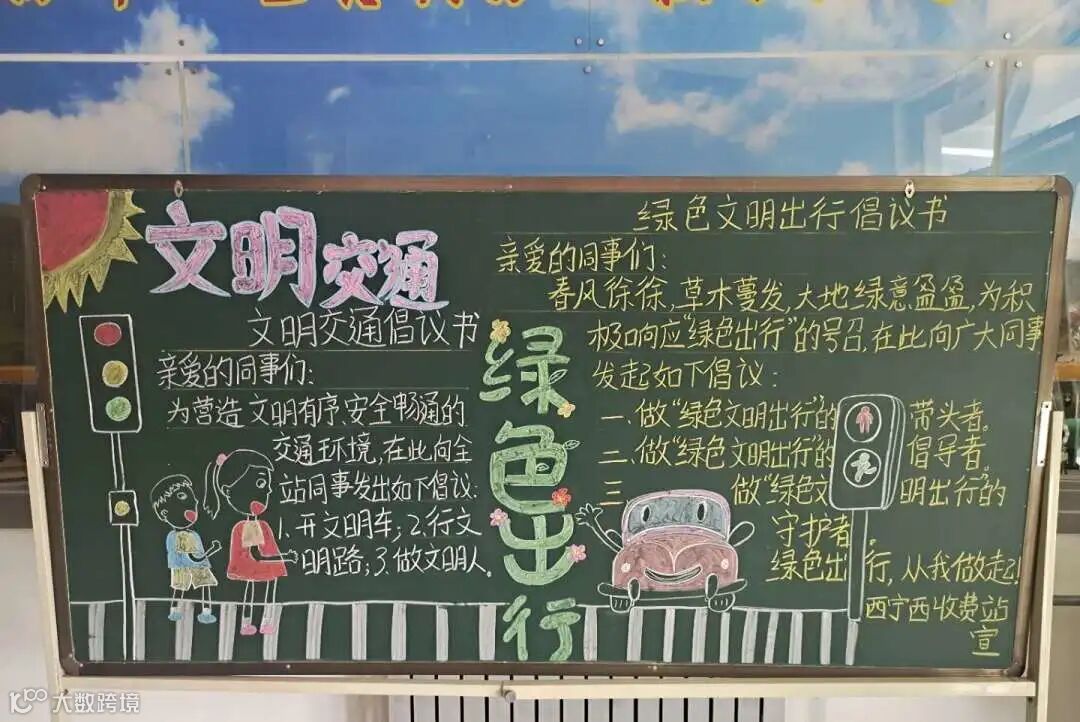 文明交通
文明交通倡议书
亲爱的同事们:
为营造文明有序、安全畅通的
交通环境,在此向全
站同事发出如下倡议:
1.开文明车;2.行文
明路;3.做文明人。
绿色出行
绿色文明出行倡议书
亲爱的同事们:
春风徐徐,草木蔓发,大地绿意盈盈,为积
极响应“绿色出行”的号召,在此向广大同事
发起如下倡议:
一、做“绿色文明出行”的带头者。
二、做“绿色文明出行”的倡导者。
三 做“绿色文明出行”的
守护者。
绿色出行,从我做起!
西宁西收费站
宣
大数跨境